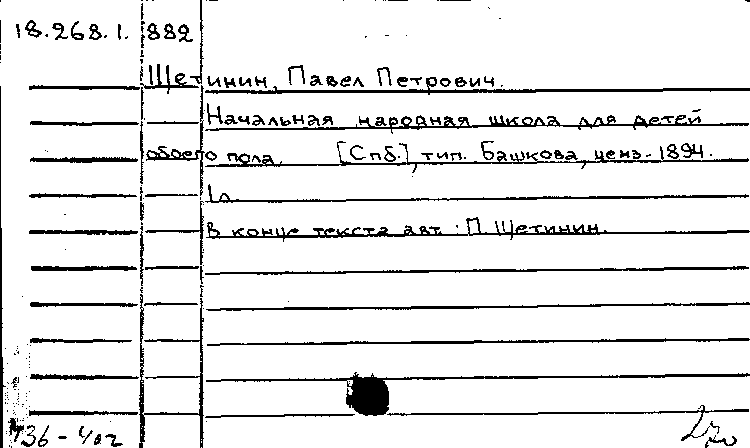 18.268.1.882
Щетинин, Павел Петрович.
Начальная народная школа для детей
обоего пола. [Спб.], тип. Башкова, ценз. 1894.
1л.
В конце текста авт.: П. Щетинин.
736-402